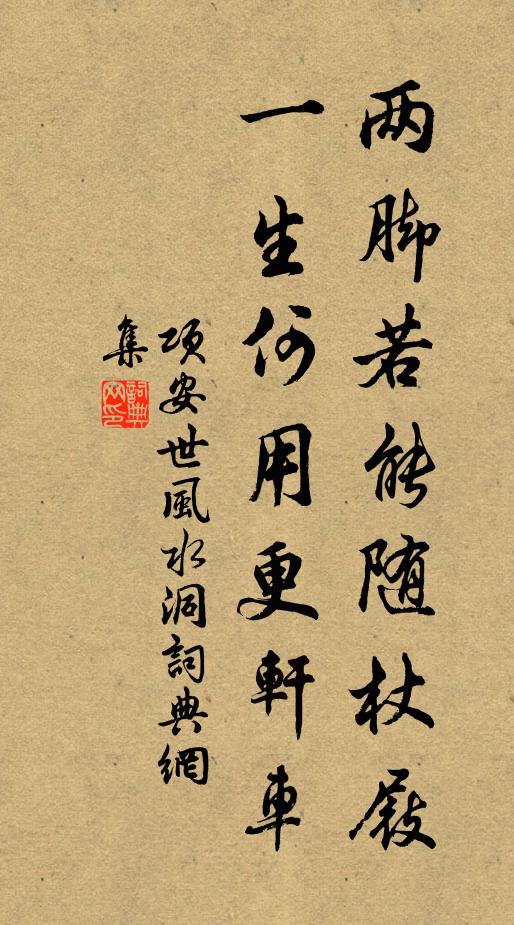 两脚若能随杖屐
一生何用更軒車
項安世風水洞詞典網
集
詞典網印